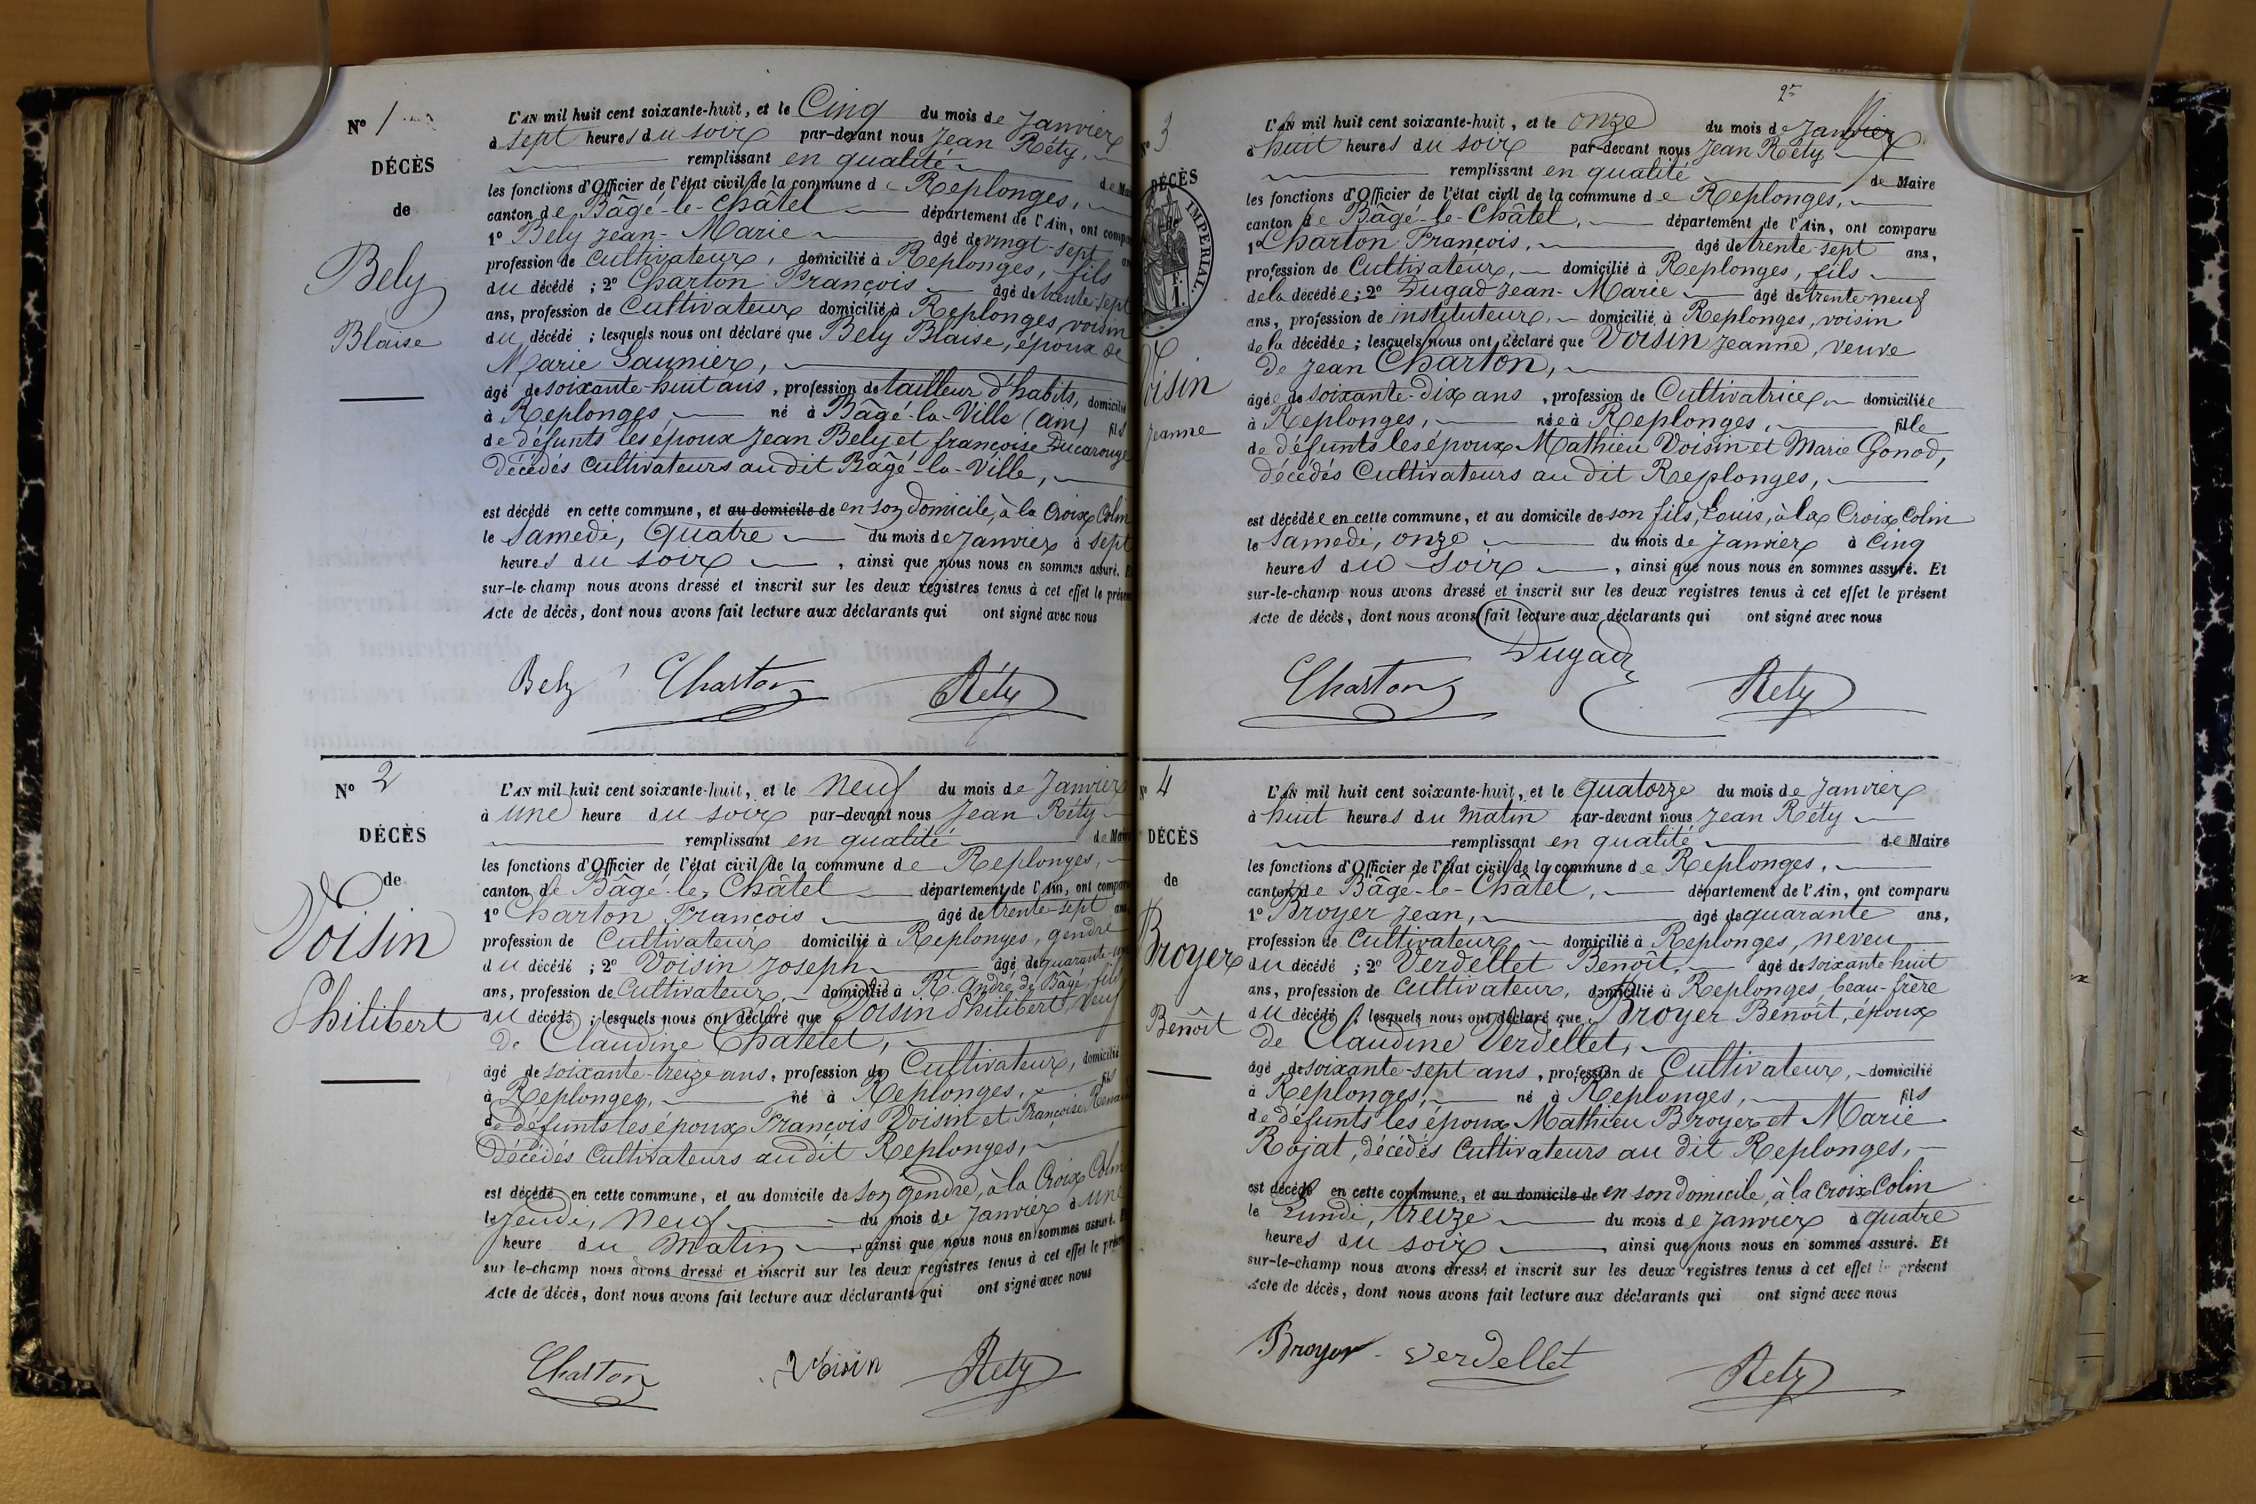 N° 1
DÉCÈS
de
Bely
Blaise
L'AN mil huit cent soixante-huit, et le Cinq du mois de Janvier
à sept heures du soir par-devant nous Jean Réty,
remplissant en qualité de Mai
les fonctions d'Officier de l'état civil de la commune de Replonges,
canton de Bâgé-le-Châtel département de l'Ain, ont compa
1° Bely Jean-Marie âgé de vingt-sept an
profession de Cultivateur, domicilié à Replonges, fils
du décédé ; 2° Charton François âgé de trente-sept
ans, profession de Cultivateur domicilié à Replonges, voisin
du décédé ; lesquels nous ont déclaré que Bely Blaise, époux de
Marie Saunier,
âgé de soixante-huit ans, profession de tailleur d'habits, domicilié
à Replonges, né à Bâgé-la-Ville (ain) fils
de défunts les époux Jean Bely et françoise Ducarouge
décédés Cultivateurs audit Bâgé-la-Ville,
est décédé en cette commune, et au domicile de en son domicile, à la Croix Colin
le Samedi, Quatre du mois de Janvier à sept
heures du soir, ainsi que nous nous en sommes assuré. E
sur-le-champ nous avons dressé et inscrit sur les deux registres tenus à cet effet le présen
Acte de décès, dont nous avons fait lecture aux déclarants qui ont signé avec nous
Bely Charton Réty
N° 2
DÉCÈS
de
Voisin
Philibert
L'AN mil huit cent soixante-huit, et le neuf du mois de Janvier
à une heure du soir par-devant nous Jean Réty
remplissant en qualité de Mai
les fonctions d'Officier de l'état civil de la commune de Replonges,
canton de Bâgé-le-Châtel département de l'Ain, ont compar
1° Charton François âgé de trente-sept ans
profession de Cultivateur domicilié à Replonges, gendre
du décédé ; 2° Voisin Joseph âgé de quarante
ans, profession de Cultivateur, domicilié à St André de Bâgé, fils
du décédé ; lesquels nous ont déclaré que Voisin Philibert, veuf
de Claudine Chatelet,
âgé de soixante-treize ans, profession de Cultivateur, domicilié
à Replonges, né à Replonges, fils
de défunts les époux François Voisin et Françoise
décédés Cultivateurs audit Replonges,
est décédé en cette commune, et au domicile de son gendre, à la Croix Colin
le Jeudi, neuf du mois de Janvier à une
heure du matin, ainsi que nous nous en sommes assuré. E
sur le-champ nous avons dressé et inscrit sur les deux registres tenus à cet effet le présen
Acte de décès, dont nous avons fait lecture aux déclarants qui ont signé avec nous
Charton Voisin Réty
2
N° 3
DÉCÈS
de
IMPÉRIAL.
Voisin
Jeanne
L'AN mil huit cent soixante-huit, et le onze du mois de Janvier
à huit heures du soir par-devant nous Jean Réty
remplissant en qualité de Maire
les fonctions d'Officier de l'état civil de la commune de Replonges,
canton de Bâgé-le-Châtel, département de l'Ain, ont comparu
1° Charton François, âgé de trente-sept ans,
profession de Cultivateur, domicilié à Replonges, fils
de la décédée ; 2° Dugad Jean-Marie âgé de trente neuf
ans, profession de instituteur, domicilié à Replonges, voisin
de la décédée ; lesquels nous ont déclaré que Voisin Jeanne, veuve
de Jean Charton,
âgée de soixante-dix ans, profession de Cultivatrice, domiciliée
à Replonges, née à Replonges, fille
de défunts les époux Mathieu Voisin et Marie Gonod,
décédés Cultivateurs au dit Replonges,
est décédée en cette commune, et au domicile de son fils, Louis, à la Croix Colin
le Samedi, onze du mois de Janvier à Cinq
heures du soir, ainsi que nous nous en sommes assuré. Et
sur-le-champ nous avons dressé et inscrit sur les deux registres tenus à cet effet le présent
Acte de décès, dont nous avons fait lecture aux déclarants qui ont signé avec nous
Charton Dugad Réty
N° 4
DÉCÈS
de
Broyer
Benoît
L'AN mil huit cent soixante-huit, et le quatorze du mois de Janvier
à huit heures du matin par-devant nous Jean Réty
remplissant en qualité de Maire
les fonctions d'Officier de l'état civil de la commune de Replonges,
canton de Bâgé-le-Châtel, département de l'Ain, ont comparu
1° Broyer Jean, âgé de quarante ans,
profession de Cultivateur domicilié à Replonges, neveu
du décédé ; 2° Verdellet Benoît, âgé de soixante huit
ans, profession de Cultivateur, domicilié à Replonges beau-frère
du décédé ; lesquels nous ont déclaré que Broyer Benoît, époux
de Claudine Verdellet,
âgé de soixante-sept ans, profession de Cultivateur, domicilié
à Replonges, né à Replonges, fils
de défunts les époux Mathieu Broyer et Marie
Rojat, décédés Cultivateurs au dit Replonges,
est décédé en cette commune, et au domicile de en son domicile, à la Croix Colin
le Lundi, treize du mois de Janvier à quatre
heures du soir ainsi que nous nous en sommes assuré. Et
sur-le-champ nous avons dressé et inscrit sur les deux registres tenus à cet effet le présent
Acte de décès, dont nous avons fait lecture aux déclarants qui ont signé avec nous
Broyer Verdellet Réty